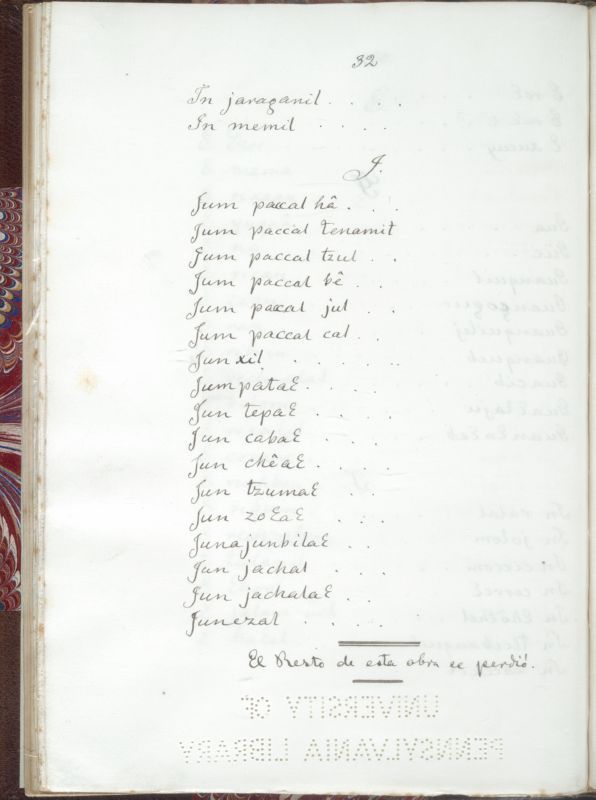 32
In jaraganil . . . .
In memil . . . .
J.
Jum paccal hâ . . .
Jum paccal tenamit
Jum paccal tzul . .
Jum paccal bê . .
Jum paccal jul . .
Jum paccal cal . .
Jun xil . . . . . .
Jum pataɛ . . . .
Jun tepaɛ . . . .
Jun cabaɛ . . . .
Jun chêaɛ . . . .
Jun tzumaɛ . .
Jun zoɛaɛ . . .
Junajunbilaɛ . .
Jun jachal . . .
Jun jachalaɛ . .
Junezal . . . .
El Resto de esta obra se perdió.
UNIVERSITY OF
PENNSYLVANIA LIBRARY